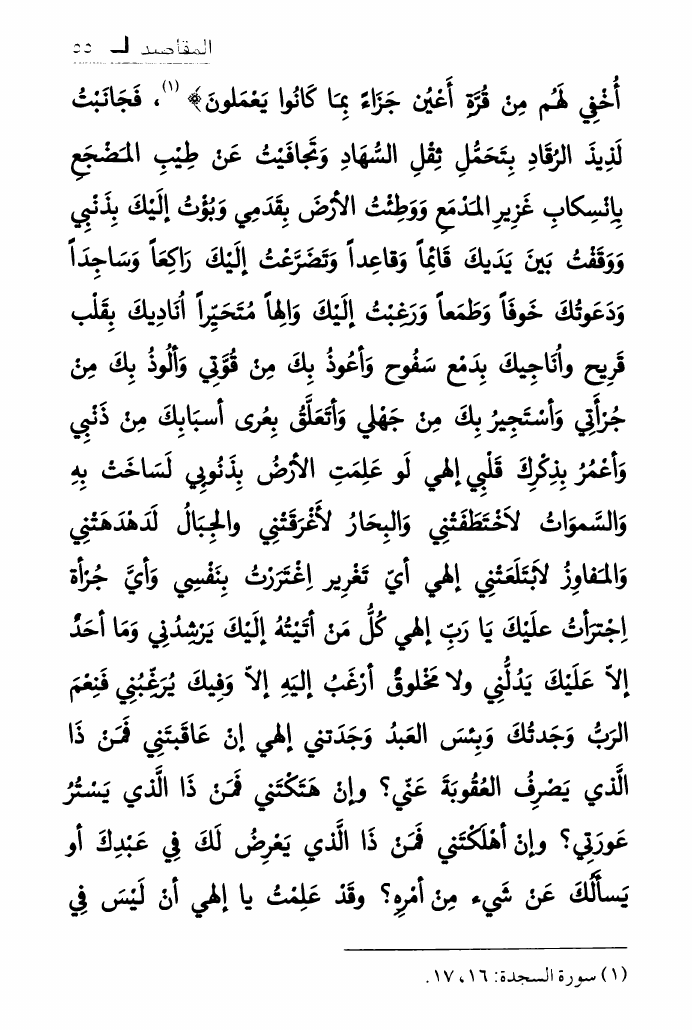 المقاصد لـ ٥٥
أُخْفِي لَهُم مِنْ قُرَّةِ أَعْيُن جَزَاءً بِمَا كَانُوا يَعْمَلونَ﴾ (١)، فَجَانَبْتُ
لَذِيذَ الرُقَادِ بِتَحَمُّلِ ثِقْلِ السُّهَادِ وَتَجافَيْتُ عَنْ طِيْبِ المَضْجَعِ
بِإنْسِكابِ غَزِيرِ المَدْمَعِ وَوَطِئْتُ الأرْضَ بِقَدَمِي وَبُؤْتُ إلَيْكَ بِذَنْبِي
وَوَقَفْتُ بَينَ يَدَيكَ قَائِماً وَقاعِداً وَتَضَرَّعْتُ إلَيْكَ رَاكِعَاً وَسَاجِدَاً
وَدَعَوتُكَ خَوفَاً وَطَمَعاً وَرَغِبْتُ إلَيْكَ وَالِهاً مُتَحَيِّراً اُنَادِيكَ بِقَلْب
قَرِيح واُنَاجِيكَ بِدَمْع سَفُوح وَأعُوذُ بِكَ مِنْ قُوَّتِي وَألُوذُ بِكَ مِنْ
جُرْأَتِي وَأسْتَجِيرُ بِكَ مِنْ جَهْلي وَأتَعَلَّقُ بِعُرى أسبَابِكَ مِنْ ذَنْبِي
وَأعْمُرُ بِذِكْرِكَ قَلْبِي إلهي لَو عَلِمَتِ الأرْضُ بِذَنُوبِي لَسَاخَتْ بِهِ
وَالسَّموَاتُ لاَخْتَطَفَتْنِي وَالبِحَارُ لأَغْرَقَتْنِي والجِبَالُ لَدَهْدَهَتْنِي
وَالمَفاوِزُ لأَبْتَلَعَتْنِي إلهي أيّ تَغْرِير اِغْتَرَرْتُ بِنَفْسِي وَأيَّ جُرْأة
اِجْتَرَأتُ علَيْكَ يَا رَبِّ إلهي كُلُّ مَنْ أتَيْتُهُ إلَيْكَ يَرْشِدُنِي وَمَا أحَدٌ
إلاّ عَلَيْكَ يَدُلُّنِي ولا مَخْلوقٌ أرْغَبُ إلَيَهِ إلاّ وَفِيكَ يُرَغِّبُنِي فَنِعْمَ
الرَبُّ وَجَدتُكَ وَبِئسَ العَبدُ وَجَدَتني إلهي إنْ عَاقَبتَنِي فَمَنْ ذَا
الَّذي يَصْرِفُ العُقُوبَةَ عَنّي؟ وإنْ هَتَكْتَني فَمَنْ ذَا الَّذي يَسْتُرُ
عَورَتِي؟ وإنْ أهْلَكْتَني فَمَنْ ذَا الَّذي يَعْرِضُ لَكَ فِي عَبْدِكَ أو
يَسألُكَ عَنْ شَيء مِنْ أمْرِهِ؟ وقَدْ عَلِمْتُ يا إلهي أنْ لَيْسَ فِي
(١) سورة السجدة: ١٦، ١٧.